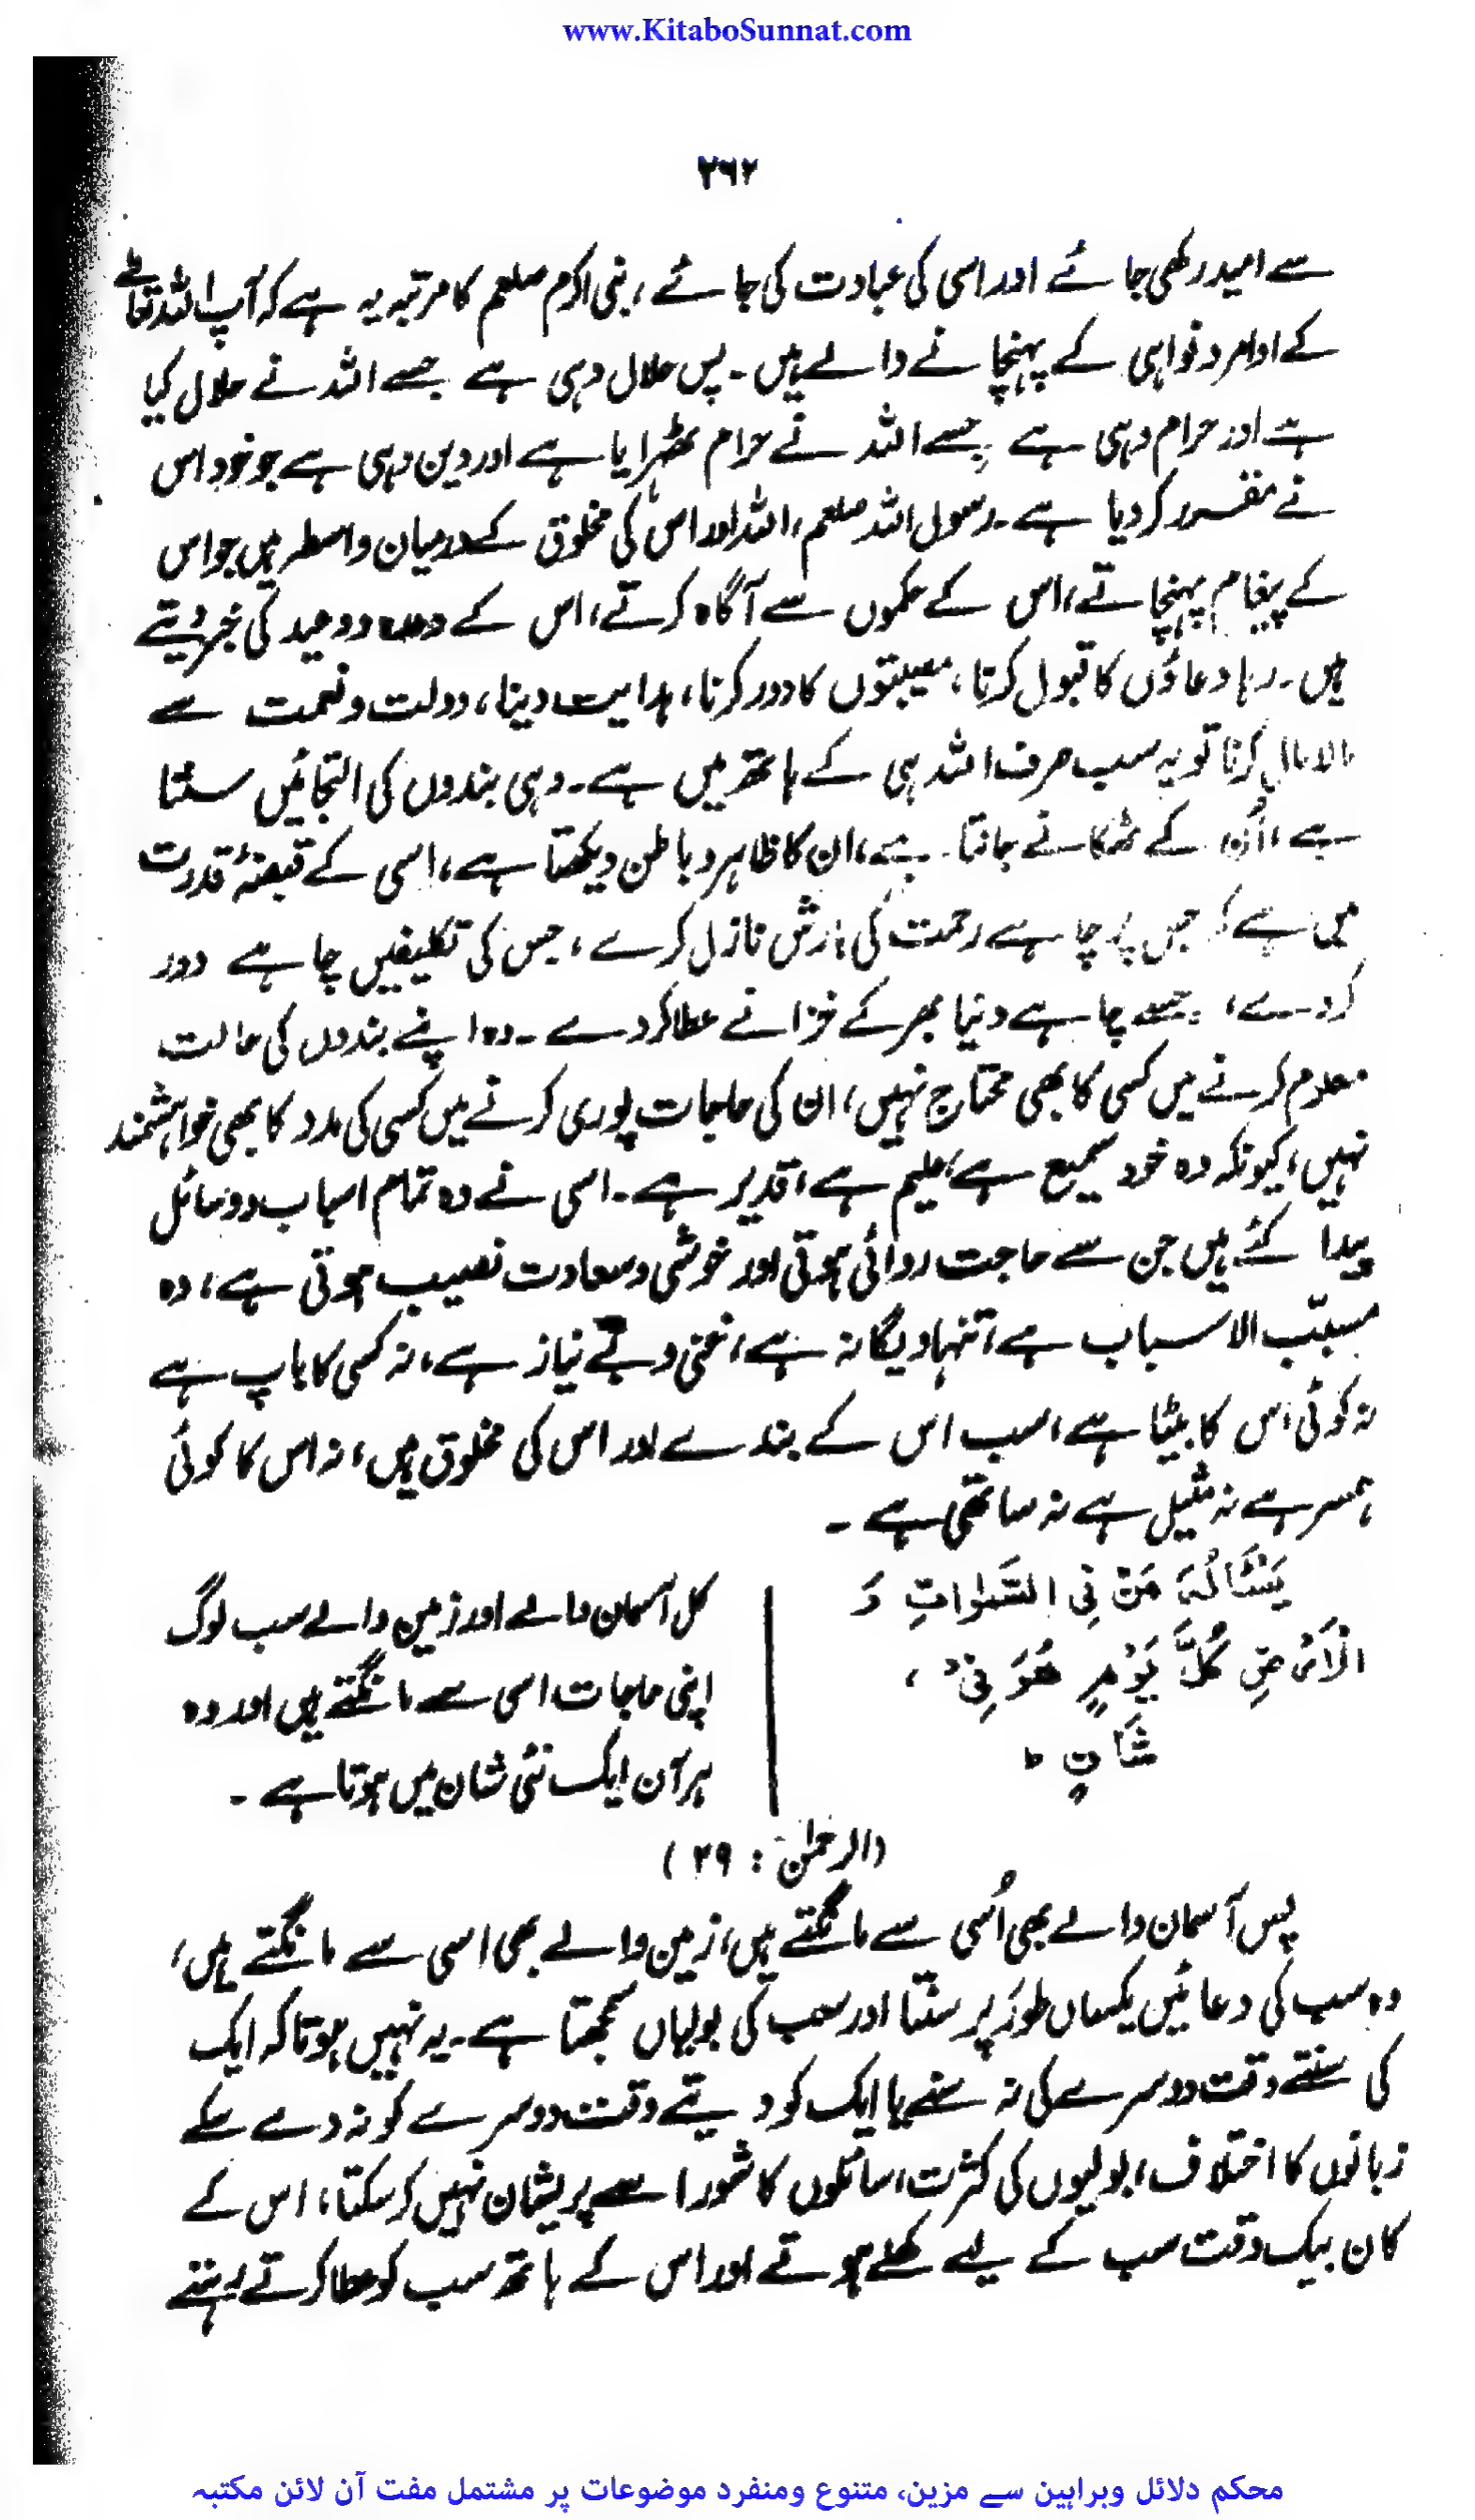 www.KitaboSunnat.com
۲۶۲
سے امید رکھی جائے اور اسی کی عبادت کی جائے، نبی اکرم صلعم کا مرتبہ یہ ہے کہ آپ اللہ تعالےٰ
کے اوامر و نواہی کے پہنچانے والے ہیں۔ پس حلال وہی ہے جسے اللہ نے حلال کیا
ہے اور حرام وہی ہے جسے اللہ نے حرام ٹھہرایا ہے اور دین وہی ہے جو خود اس
نے مقرر کر دیا ہے۔ رسول اللہ صلعم، اللہ اور اس کی مخلوق کے درمیان واسطہ ہیں جو اس
کے پیغام پہنچاتے، اس کے حکموں سے آگاہ کرتے، اس کے وعدہ و وعید کی خبر دیتے
ہیں۔ رہا دعاؤں کا قبول کرنا، مصیبتوں کا دور کرنا، ہدایت دینا، دولت و نعمت سے
مالا مال کرنا تو یہ سب صرف اللہ ہی کے ہاتھ میں ہے۔ وہی بندوں کی التجائیں سنتا
ہے، اُن کے ٹھکانے جانتا ہے، ان کا ظاہر و باطن دیکھتا ہے، اسی کے قبضۂ قدرت
میں ہے کہ جس پر چاہے رحمت کی بارش نازل کرے، جس کی تکلیفیں چاہے دور
کر دے، جسے چاہے دنیا بھر کے خزانے عطا کر دے۔ وہ اپنے بندوں کی حالت
معلوم کرنے میں کسی کا بھی محتاج نہیں، ان کی حاجات پوری کرنے میں کسی کی مدد کا بھی خواہشمند
نہیں، کیونکہ وہ خود سمیع ہے، علیم ہے، قدیر ہے۔ اسی نے وہ تمام اسباب و وسائل
پیدا کئے ہیں جن سے حاجت روائی ہوتی اور خوشی و سعادت نصیب ہوتی ہے، وہ
مسبّب الاسباب ہے، تنہا و یگانہ ہے، غنی و بے نیاز ہے، نہ کسی کا باپ ہے
نہ کوئی اس کا بیٹا ہے، سب اس کے بندے اور اس کی مخلوق ہیں، نہ اس کا کوئی
ہمسر ہے نہ مثیل ہے نہ ساتھی ہے۔
يَسْئَالُهٗ مَنْ فِى السَّمٰوٰاتِ وَ
الْاَرْضِ كُلَّ يَوْمٍ هُوَ فِىْ،
شَاْنٍ ط
کل آسمان والے اور زمین والے سب لوگ
اپنی حاجات اسی سے مانگتے ہیں اور وہ
ہر آن ایک نئی شان میں ہوتا ہے۔
(الرحمٰن : ۲۹)
پس آسمان والے بھی اُسی سے مانگتے ہیں، زمین والے بھی اسی سے مانگتے ہیں،
وہ سب کی دعائیں یکساں طور پر سنتا اور سب کی بولیاں سمجھتا ہے۔ یہ نہیں ہوتا کہ ایک
کی سنتے وقت دوسرے کی نہ سنے یا ایک کو دیتے وقت دوسرے کو نہ دے سکے
زبانوں کا اختلاف، بولیوں کی کثرت، سائلوں کا شور اسے پریشان نہیں کر سکتا، اس کے
کان بیک وقت سب کے لیے کھلے ہوتے اور اس کے ہاتھ سب کو عطا کرتے رہتے
محکم دلائل وبراہین سے مزین، متنوع ومنفرد موضوعات پر مشتمل مفت آن لائن مکتبہ